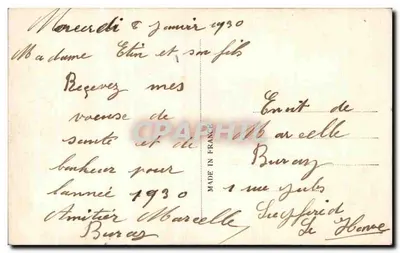 Mercredi 8 Janvier 1930
Madame Etin et son fils
Reçevez mes
voeuse de
sante et de
bonheur pour
lannée 1930
Amitier Marcelle
Buraz
MADE IN FRANCE
Envoit de
Marcelle
Buraz
1 rue Jules
Siegfried
Le Havre